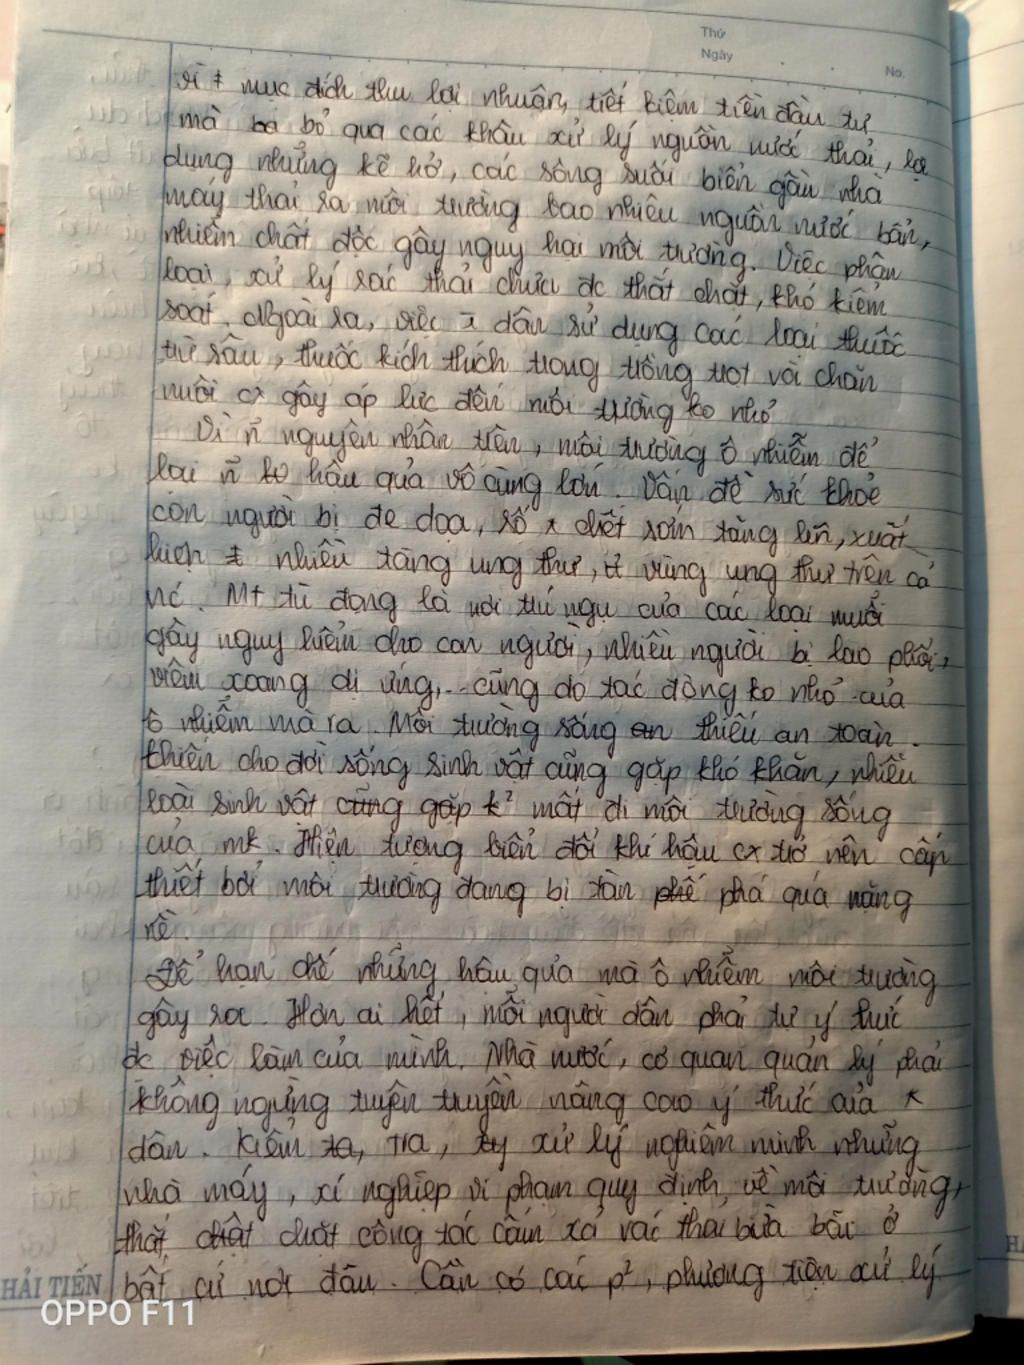 Thứ
Ngày
No.
vì mục đích thu lợi nhuận, tiết kiệm tiền đầu tư
mà bỏ qua các khâu xử lý nguồn nước thải, lợi
dụng những kẽ hở, các sông suối biển gần nhà
máy thải ra môi trường bao nhiêu nguồn nước bẩn,
nhiễm chất độc gây nguy hại môi trường. Việc phân
loại, xử lý rác thải chưa đc thắt chặt, khó kiểm
soát. Ngoài ra, việc dân sử dụng các loại thuốc
trừ sâu, thuốc kích thích trong trồng trọt với chăn
nuôi cx gây áp lực đến môi trường ko nhỏ
Vì ñ nguyên nhân trên, môi trường ô nhiễm để
lại ñ hậu quả vô cùng lớn. Vấn đề sức khoẻ
con người bị đe dọa, số x chết sớm tăng lên, xuất
hiện nhiều tăng ung thư, vùng ung thư trên cả
nc. Mt tù đọng là nơi trú ngụ của các loại muỗi
gây nguy hiểm cho con người, nhiều người bị lao phổi,
viêm xoang dị ứng,.. cũng do tác động ko nhỏ của
ô nhiễm mà ra. Môi trường sống thiếu an toàn.
khiến cho đời sống sinh vật cũng gặp khó khăn, nhiều
loài sinh vật cũng gặp k² mất đi môi trường sống
của mk. Hiện tượng biến đổi khí hậu cx trở nên cấp
thiết bởi môi trường đang bị tàn phế phá quá nặng
nề.
Để hạn chế những hậu quả mà ô nhiễm môi trường
gây ra. Hơn ai hết, mỗi người dân phải tự ý thức
đc việc làm của mình. Nhà nước, cơ quan quản lý phải
không ngừng tuyên truyền nâng cao ý thức của x
dân. Kiểm ta, tra, xử lý nghiêm minh những
nhà máy, xí nghiệp vi phạm quy định, về môi trường,
thắt chặt chặt công tác cấm xả rác thải bừa bãi ở
bất cứ nơi đâu. Cần có các p², phương tiện xử lý
HẢI TIẾN
OPPO F11